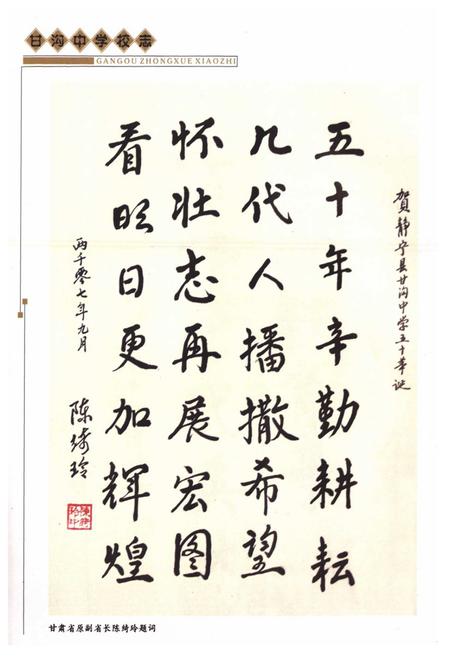 甘沟中学校志
GANGOU ZHONGXUE XIAOZHI
贺静宁县甘沟中学五十华诞
五十年辛勤耕耘
几代人播撒希望
怀壮志再展宏图
看明日更加辉煌
两千零七年九月
陈绮玲
甘肃省原副省长陈绮玲题词